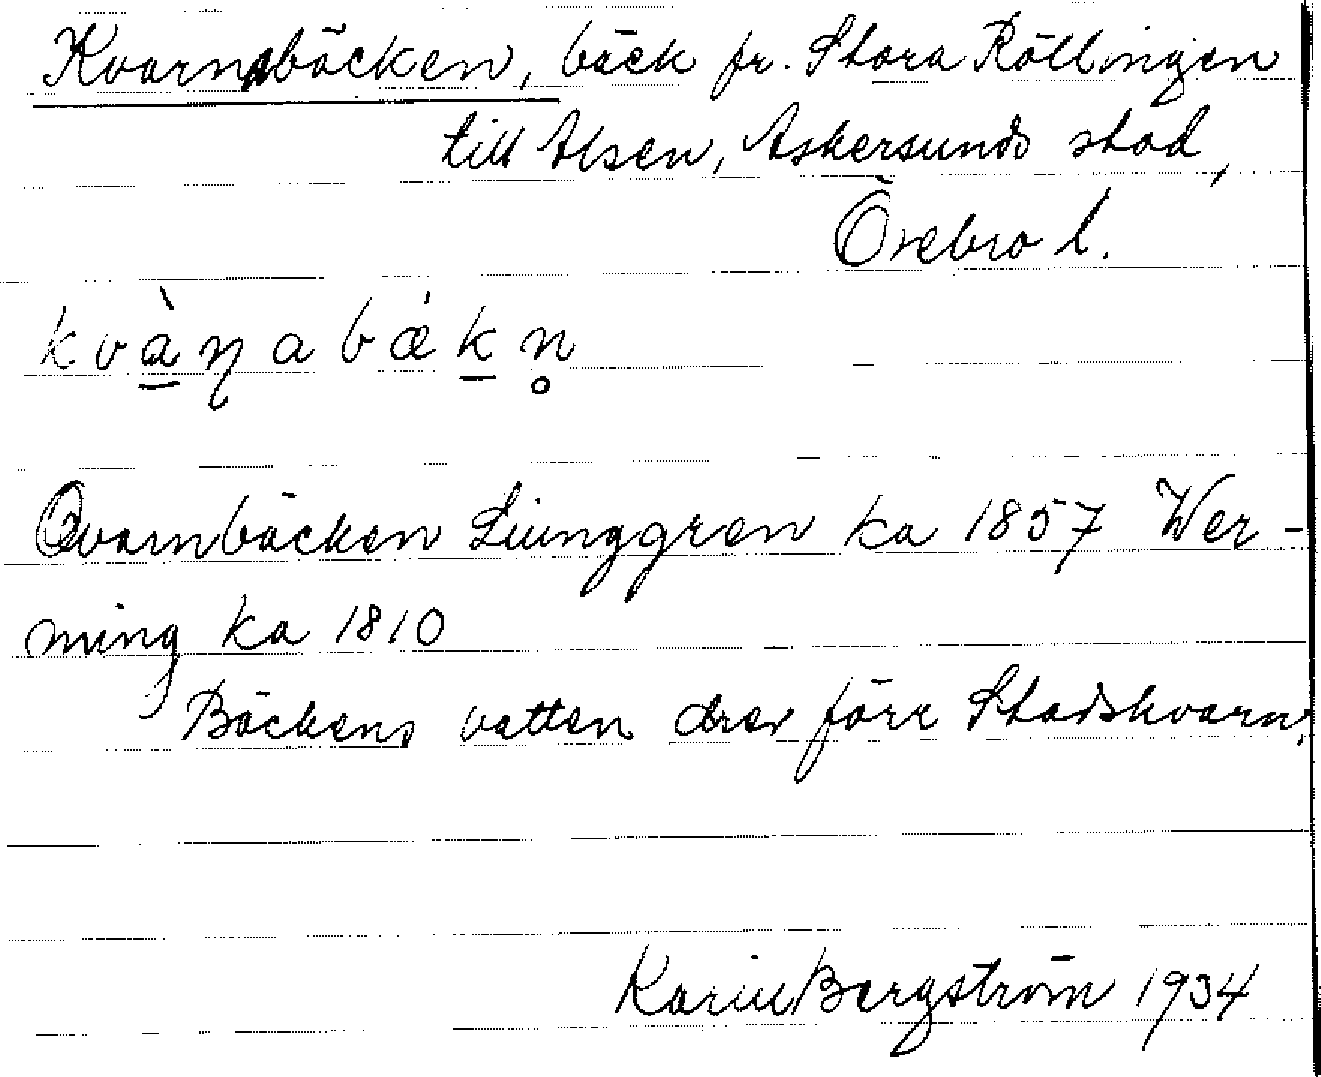 Kvarnbäcken, bäck fr. Stora Kölbingen
till Alsen, Askersunds stad,
Örebro l.
kvàṇabǽkn̥
Qvarnbäcken Liunggren ka 1857 Wer-
ming ka 1810
Bäckens vatten drev förr Stadskvarn.
Karin Bergström 1934